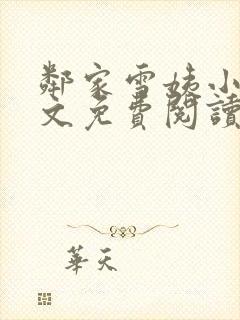 鄰家雪姨小
文免費閱讀
華天